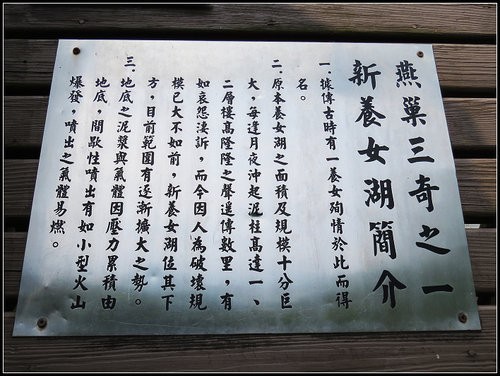 燕巢三奇之一
新養女湖簡介
一、據傳古時有一養女殉情於此而得
名。
二、原本養女湖之面積及規模十分巨
大，每逢月夜沖起泥柱高達一、
二層樓高隆隆之聲遥傳數里，有
如哀怨淒訴，而今因人為破壞規
模已大不如前，新養女湖位其下
方，目前範圍有逐漸擴大之勢。
三、地底之泥漿與氣體因壓力累積由
地底，間歇性噴出有如小型火山
爆發，噴出之氣體易燃。